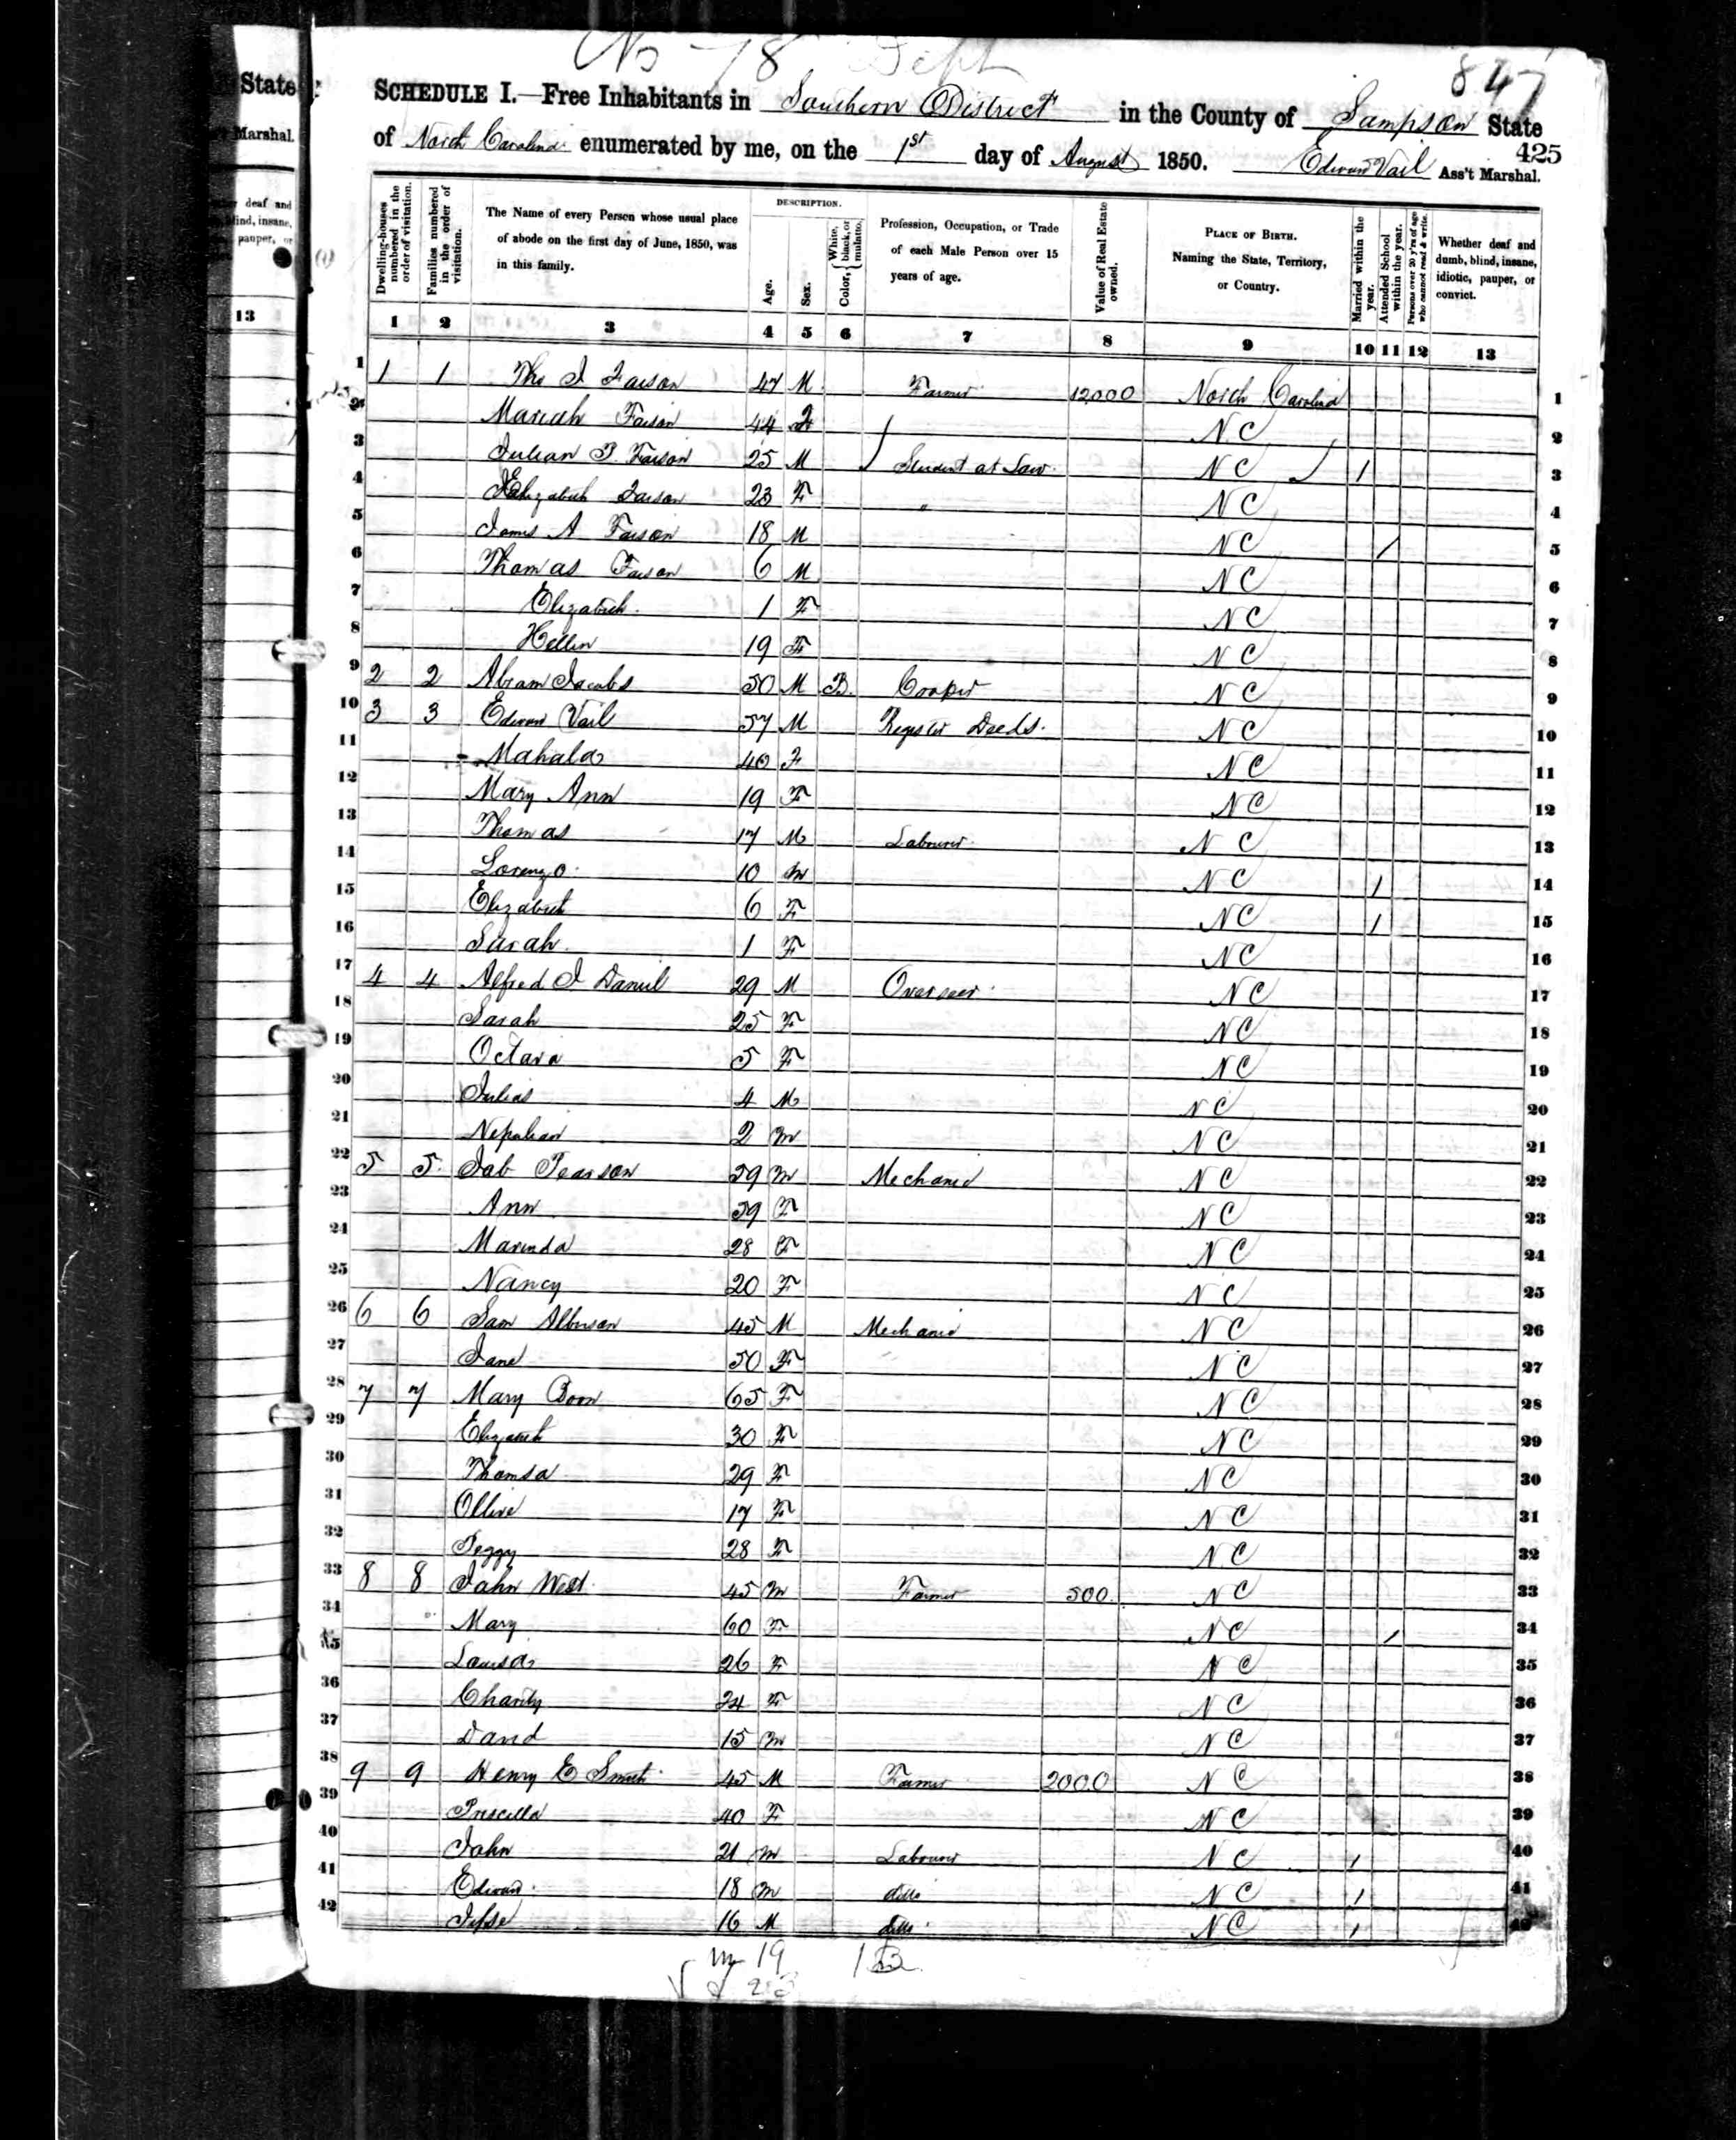 No 78 Sept
847
SCHEDULE I.—Free Inhabitants in Southern District in the County of Sampson State
of North Carolina enumerated by me, on the 1st day of August 1850. Edward Vail Ass't Marshal.
425
State
Marshal.
deaf and
blind, insane,
pauper, or
13
Dwelling-houses numbered in the order of visitation.
Families numbered in the order of visitation.
The Name of every Person whose usual place of abode on the first day of June, 1850, was in this family.
DESCRIPTION.
Age.
Sex.
Color, { White, black, or mulatto.
Profession, Occupation, or Trade of each Male Person over 15 years of age.
Value of Real Estate owned.
PLACE OF BIRTH. Naming the State, Territory, or Country.
Married within the year.
Attended School within the year.
Persons over 20 y'rs of age who cannot read & write.
Whether deaf and dumb, blind, insane, idiotic, pauper, or convict.
1 2 3 4 5 6 7 8 9 10 11 12 13
1 1 1 Tho I Faison 47 M Farmer 12000 North Carolina 1
2 Mariah Faison 44 F N C 2
3 Julian P. Faison 25 M Student at Law N C / 3
4 Elizabeth Faison 23 F " N C 4
5 James A Faison 18 M N C / 5
6 Thomas Faison 6 M N C 6
7 Elizabeth 1 F N C 7
8 Hellen 19 F N C 8
9 2 2 Abram Jacobs 50 M B. Cooper N C 9
10 3 3 Edward Vail 57 M Register Deeds. N C 10
11 Mahala 40 F N C 11
12 Mary Ann 19 F N C 12
13 Thomas 17 M Labourer N C 13
14 Lorenzo 10 M N C 1 14
15 Elizabeth 6 F N C 1 15
16 Sarah 1 F N C 16
17 4 4 Alfred I Daniel 29 M Overseer N C 17
18 Sarah 25 F N C 18
19 Octava 5 F N C 19
20 Julias 4 M N C 20
21 Nepolean 2 M N C 21
22 5 5 Job Pearson 59 M Mechanic N C 22
23 Ann 59 F N C 23
24 Marinda 28 F N C 24
25 Nancy 20 F N C 25
26 6 6 Sam Alberson 45 M Mechanic N C 26
27 Jane 50 F N C 27
28 7 7 Mary Boon 65 F N C 28
29 Elizabeth 30 F N C 29
30 Thamsa 29 F N C 30
31 Ollive 17 F N C 31
32 Peggy 28 F N C 32
33 8 8 John West 45 M Farmer 500 N C 33
34 Mary 60 F N C / 34
35 Louisa 26 F N C 35
36 Charity 24 F N C 36
37 David 15 M N C 37
38 9 9 Henry E Smith 45 M Farmer 2000 N C 38
39 Priscilla 40 F N C 39
40 John 21 M Labourer N C 1 40
41 Edward 18 M ditto N C 1 41
42 Jesse 16 M ditto N C 1 42
M 19 1 B.
F 23